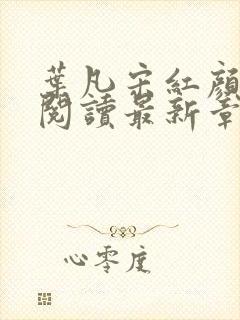 葉凡宋紅顏
閱讀最新章
心零度